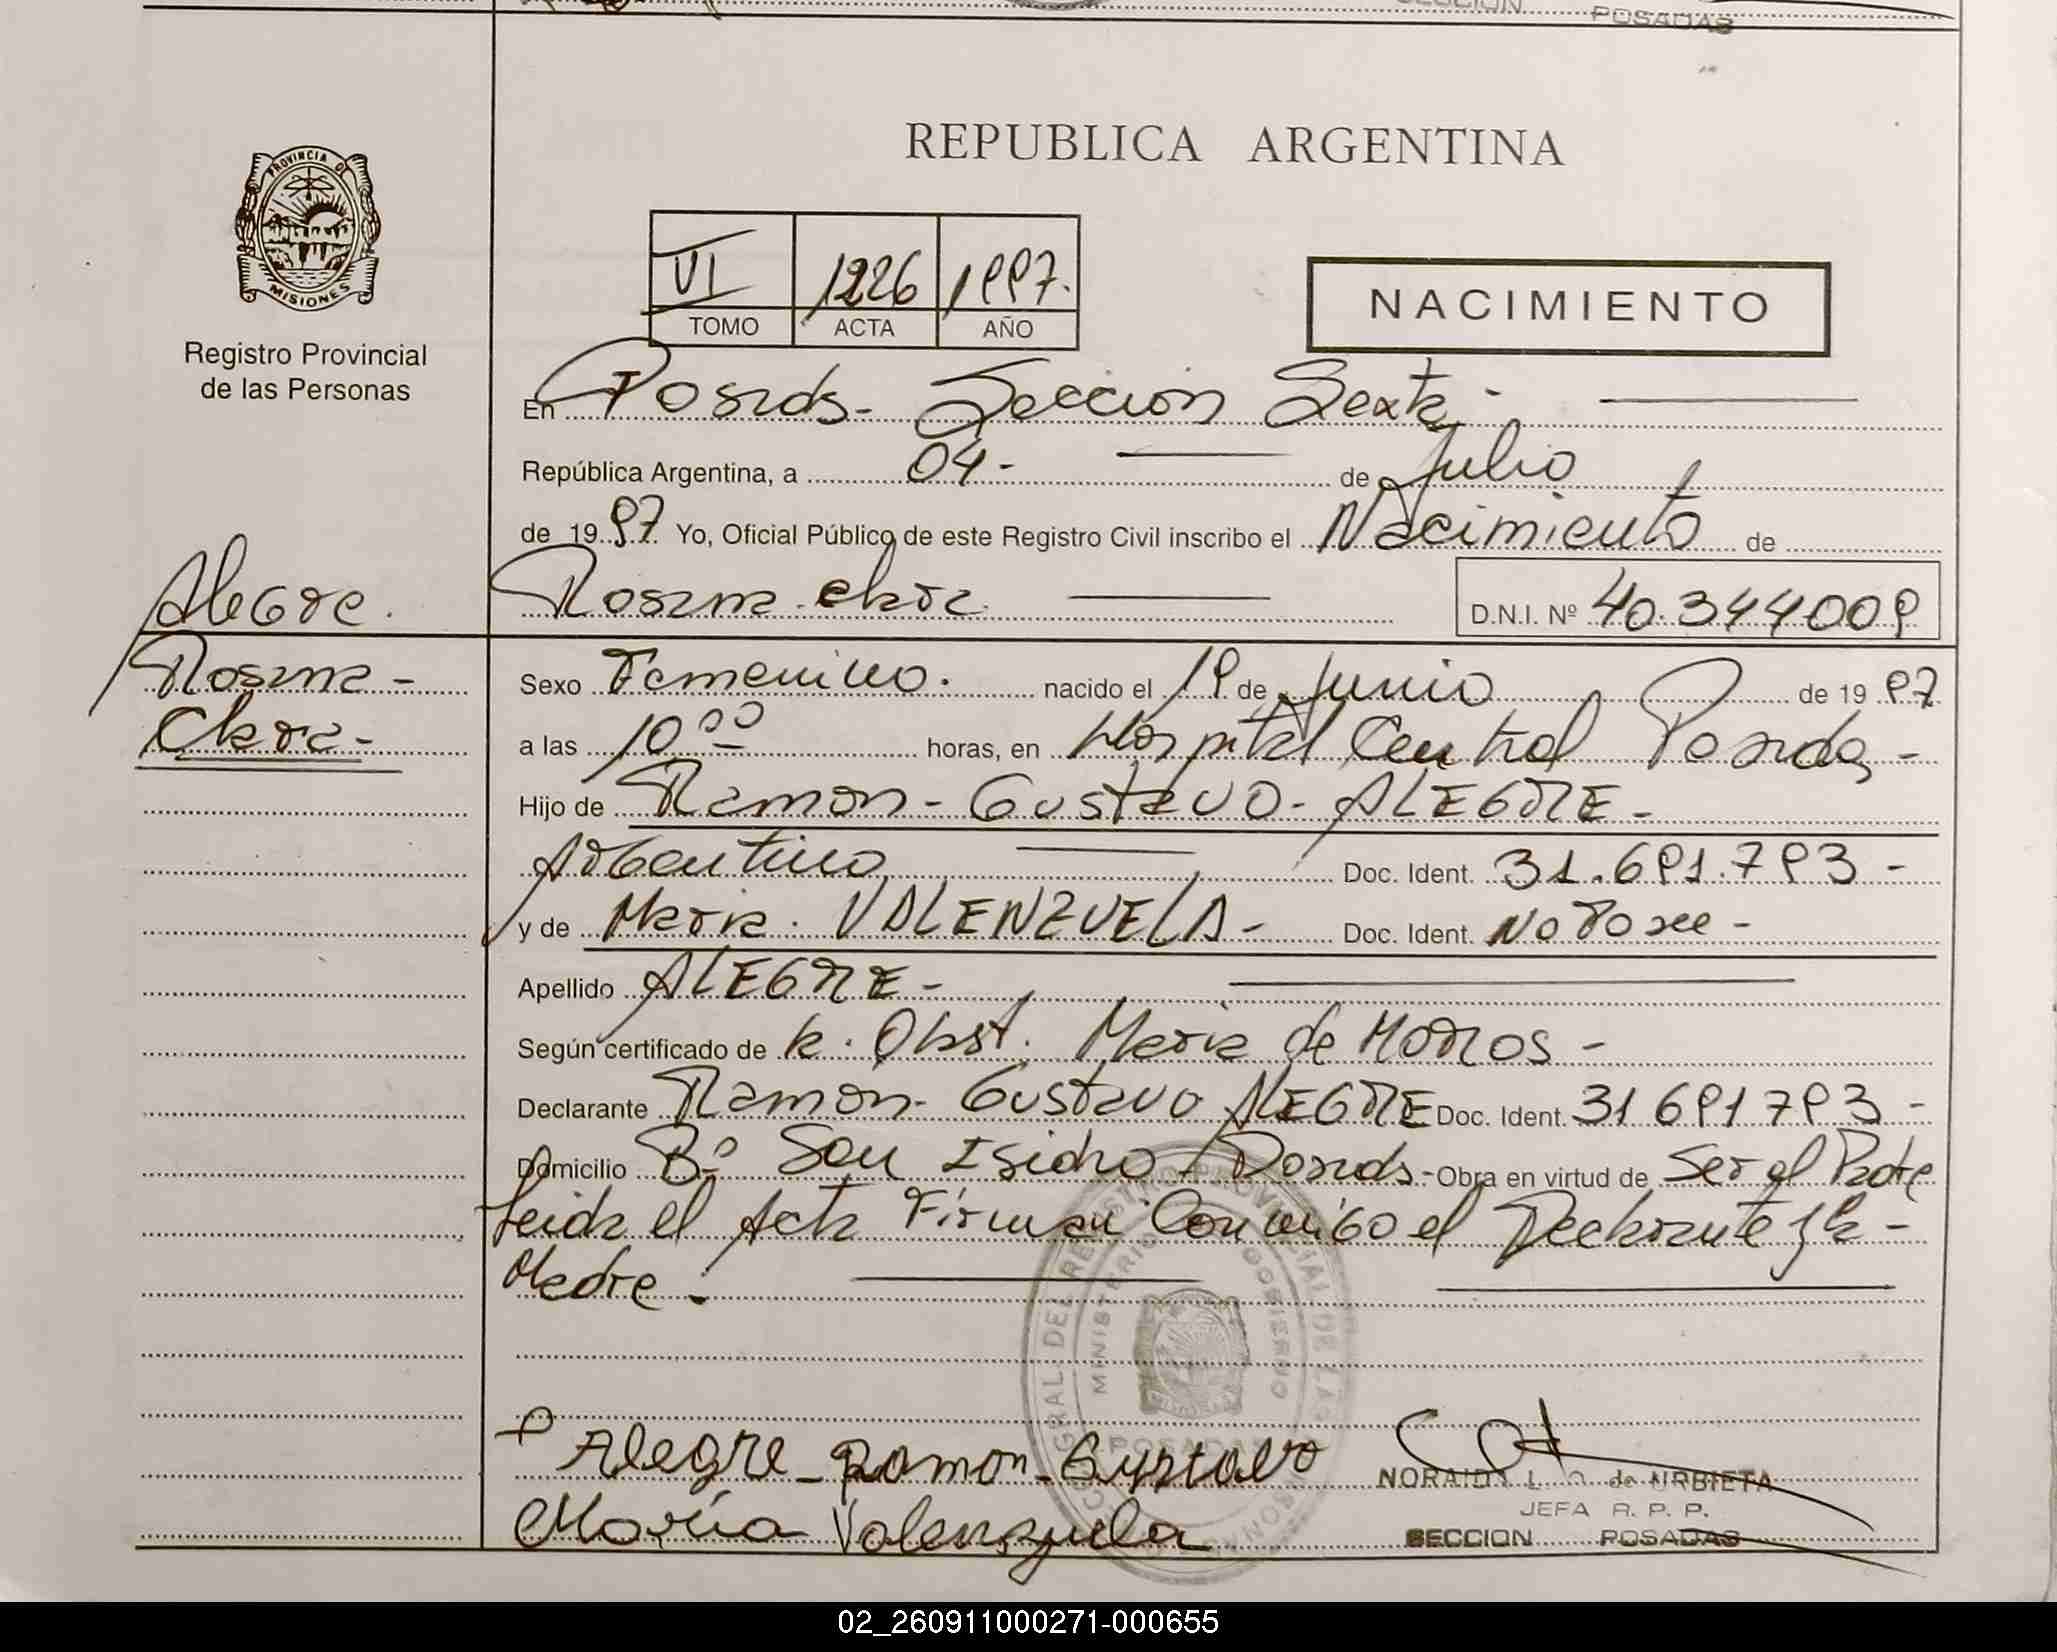 SECCION POSADAS
REPUBLICA ARGENTINA
PROVINCIA DE
MISIONES
Registro Provincial
de las Personas
VI 1226 1997.
TOMO ACTA AÑO
NACIMIENTO
En Posadas- Sección Sexta-
República Argentina, a 04- de Julio
de 1997 Yo, Oficial Público de este Registro Civil inscribo el Nacimiento de
Alegre.
Rosana Clara D.N.I. Nº 40.344009
Rosana-
Clara-
Sexo Femenino. nacido el 19 de Junio de 1997
a las 10 00 horas, en Hospital Central Posadas-
Hijo de Ramon- Gustavo- ALEGRE-
Argentino Doc. Ident. 31.691.793-
y de Maria. VALENZUELA- Doc. Ident. No Posee-
Apellido ALEGRE-
Según certificado de la. Obst. Maria de
Declarante Ramon- Gustavo ALEGRE Doc. Ident. 31691793-
Domicilio Bº San Isidro Posadas- Obra en virtud de Ser el Padre
Leida el Acta Firman Conmigo el Declarante y la-
Madre-
REGISTRO PROVINCIAL DE LAS PERSONAS
MINISTERIO GOBIERNO
POSADAS
Alegre-Ramon-Gustavo
María Valenzuela
NORAIDA L. de URBIETA
JEFA R. P. P.
SECCION POSADAS
02_260911000271-000655